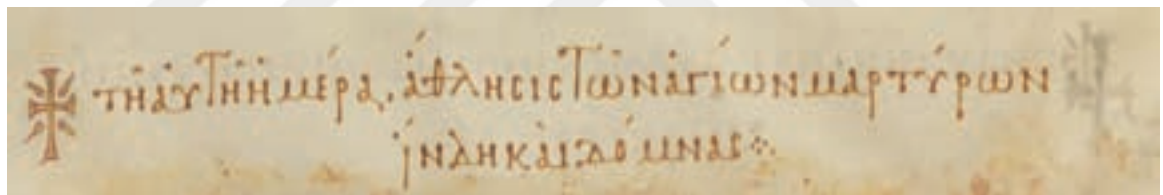 ☩ τῆ αὐτῆ ἡμέρα. ἄθλησις τῶν ἁγίων μαρτύρων
ἴνδη καὶ δόμνας ⁘